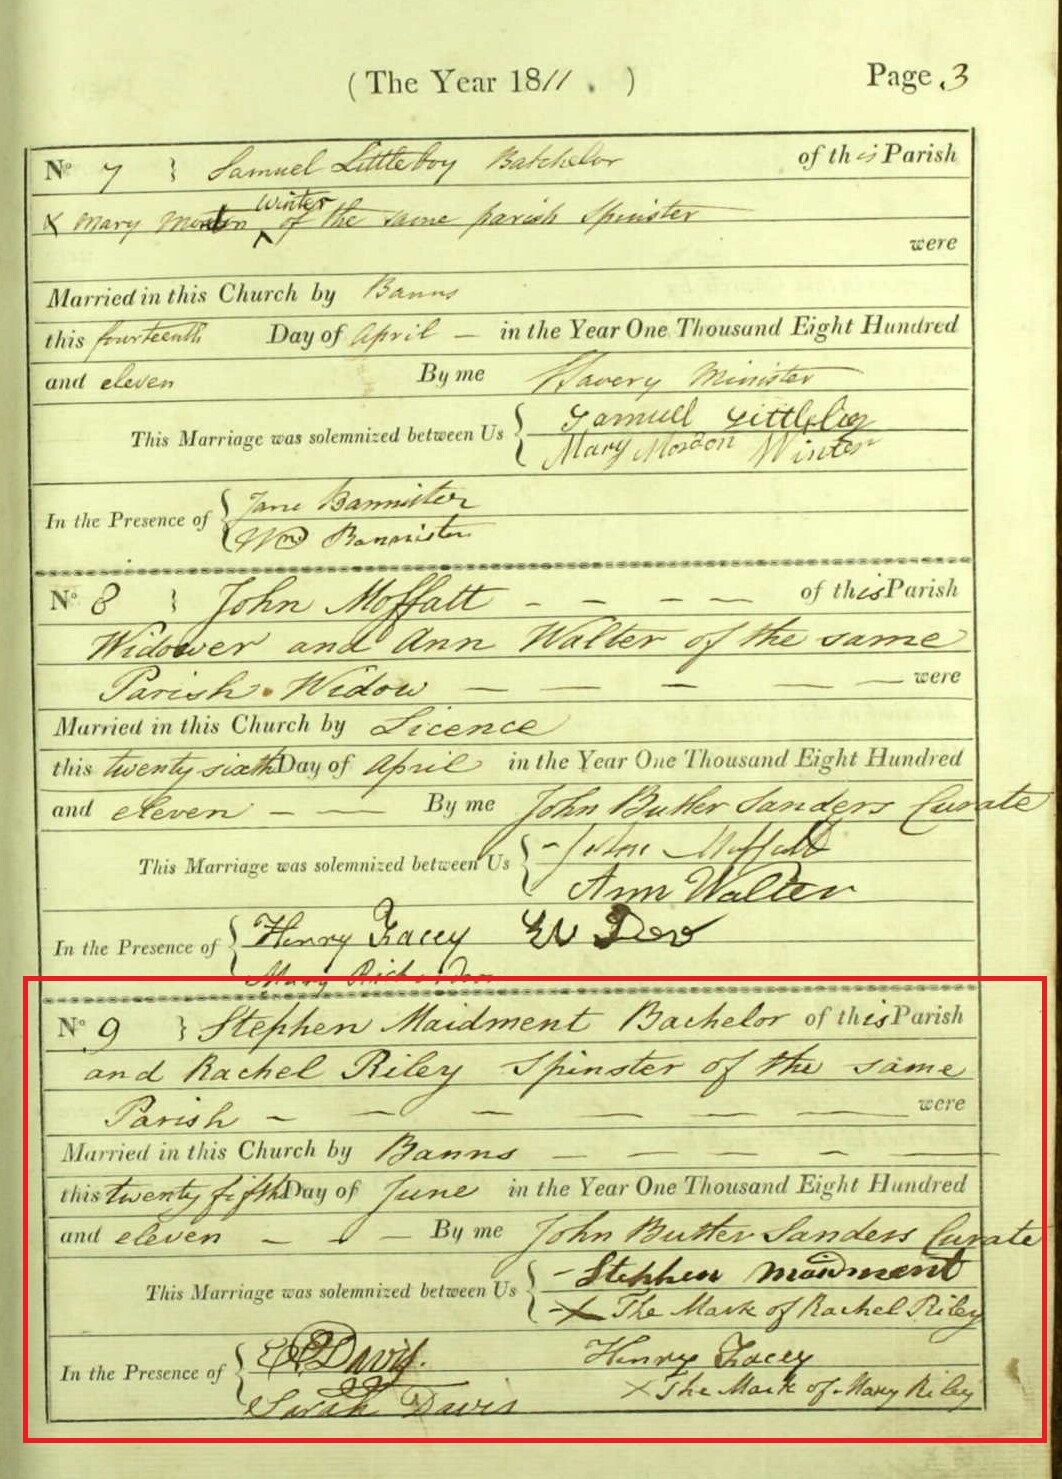 (The Year 1811. ) Page 3
No. 7 } Samuel Littleboy Batchelor of this Parish
Winter
X Mary Mordon ^ of the same parish Spinster
were
Married in this Church by Banns
this fourteenth Day of April — in the Year One Thousand Eight Hundred
and eleven By me Minister
This Marriage was solemnized between Us { Samuell Littleboy
Mary Mordon Winter
In the Presence of { Jane Bannister
Wm Bannister
No. 8 } John Moffatt - - - - of this Parish
Widower and Ann Walter of the same
Parish. Widow — — — — — were
Married in this Church by Licence
this twenty sixth Day of April in the Year One Thousand Eight Hundred
and eleven — — By me John Butler Sanders Curate
This Marriage was solemnized between Us { - John Moffatt
Ann Walter
In the Presence of { Henry Lacey
Mary
No. 9 } Stephen Maidment Bachelor of this Parish
and Rachel Riley Spinster of the same
Parish - — — — — — were
Married in this Church by Banns — — — — - —
this twenty fifth Day of June in the Year One Thousand Eight Hundred
and eleven — - — By me John Butler Sanders Curate
This Marriage was solemnized between Us { - Stephen Maidment
- X The Mark of Rachel Riley
In the Presence of { Davis. Henry Lacey
Sarah Davis X The Mark of Mary Riley